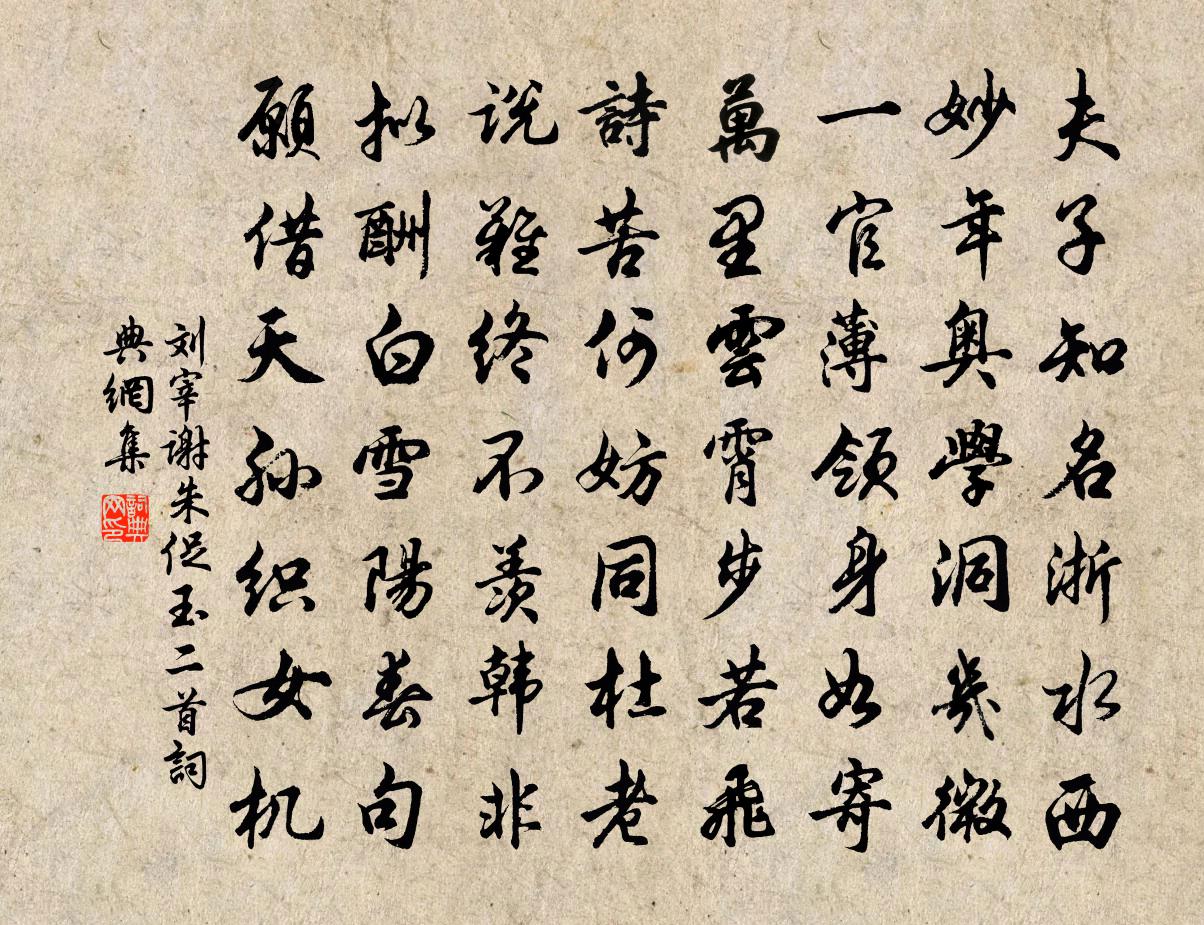 夫子知名浙水西
妙年奥學洞幾微
一官薄領身如寄
萬里雲霄步若飛
詩苦何妨同杜老
说難终不羨韩非
拟酬白雪陽春句
願借天孙织女机
刘宰谢朱促玉二首詞
典網集
詞典
网印